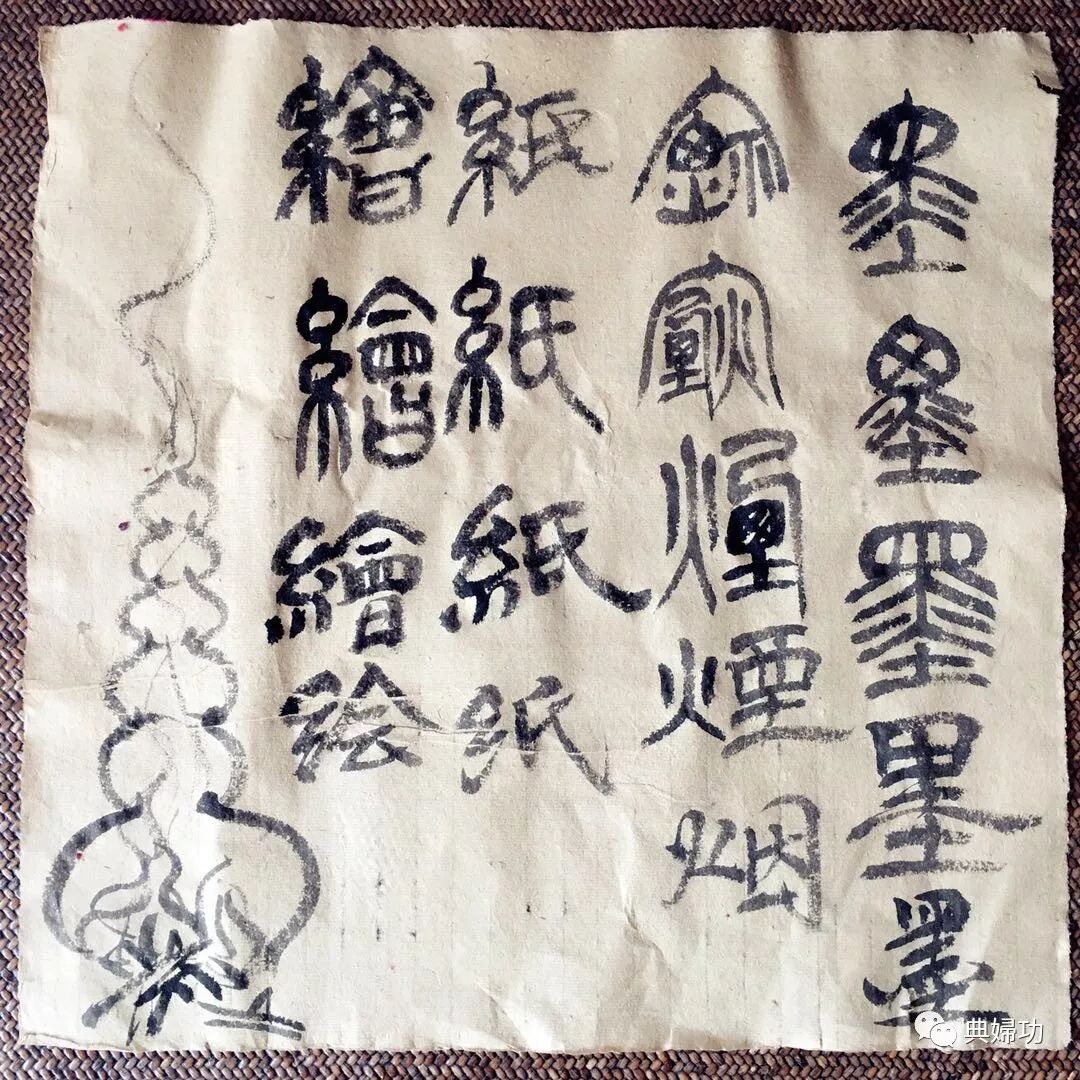 墨墨墨墨墨
煙煙烟
紙紙紙纸
繪繪繪绘
典婦功